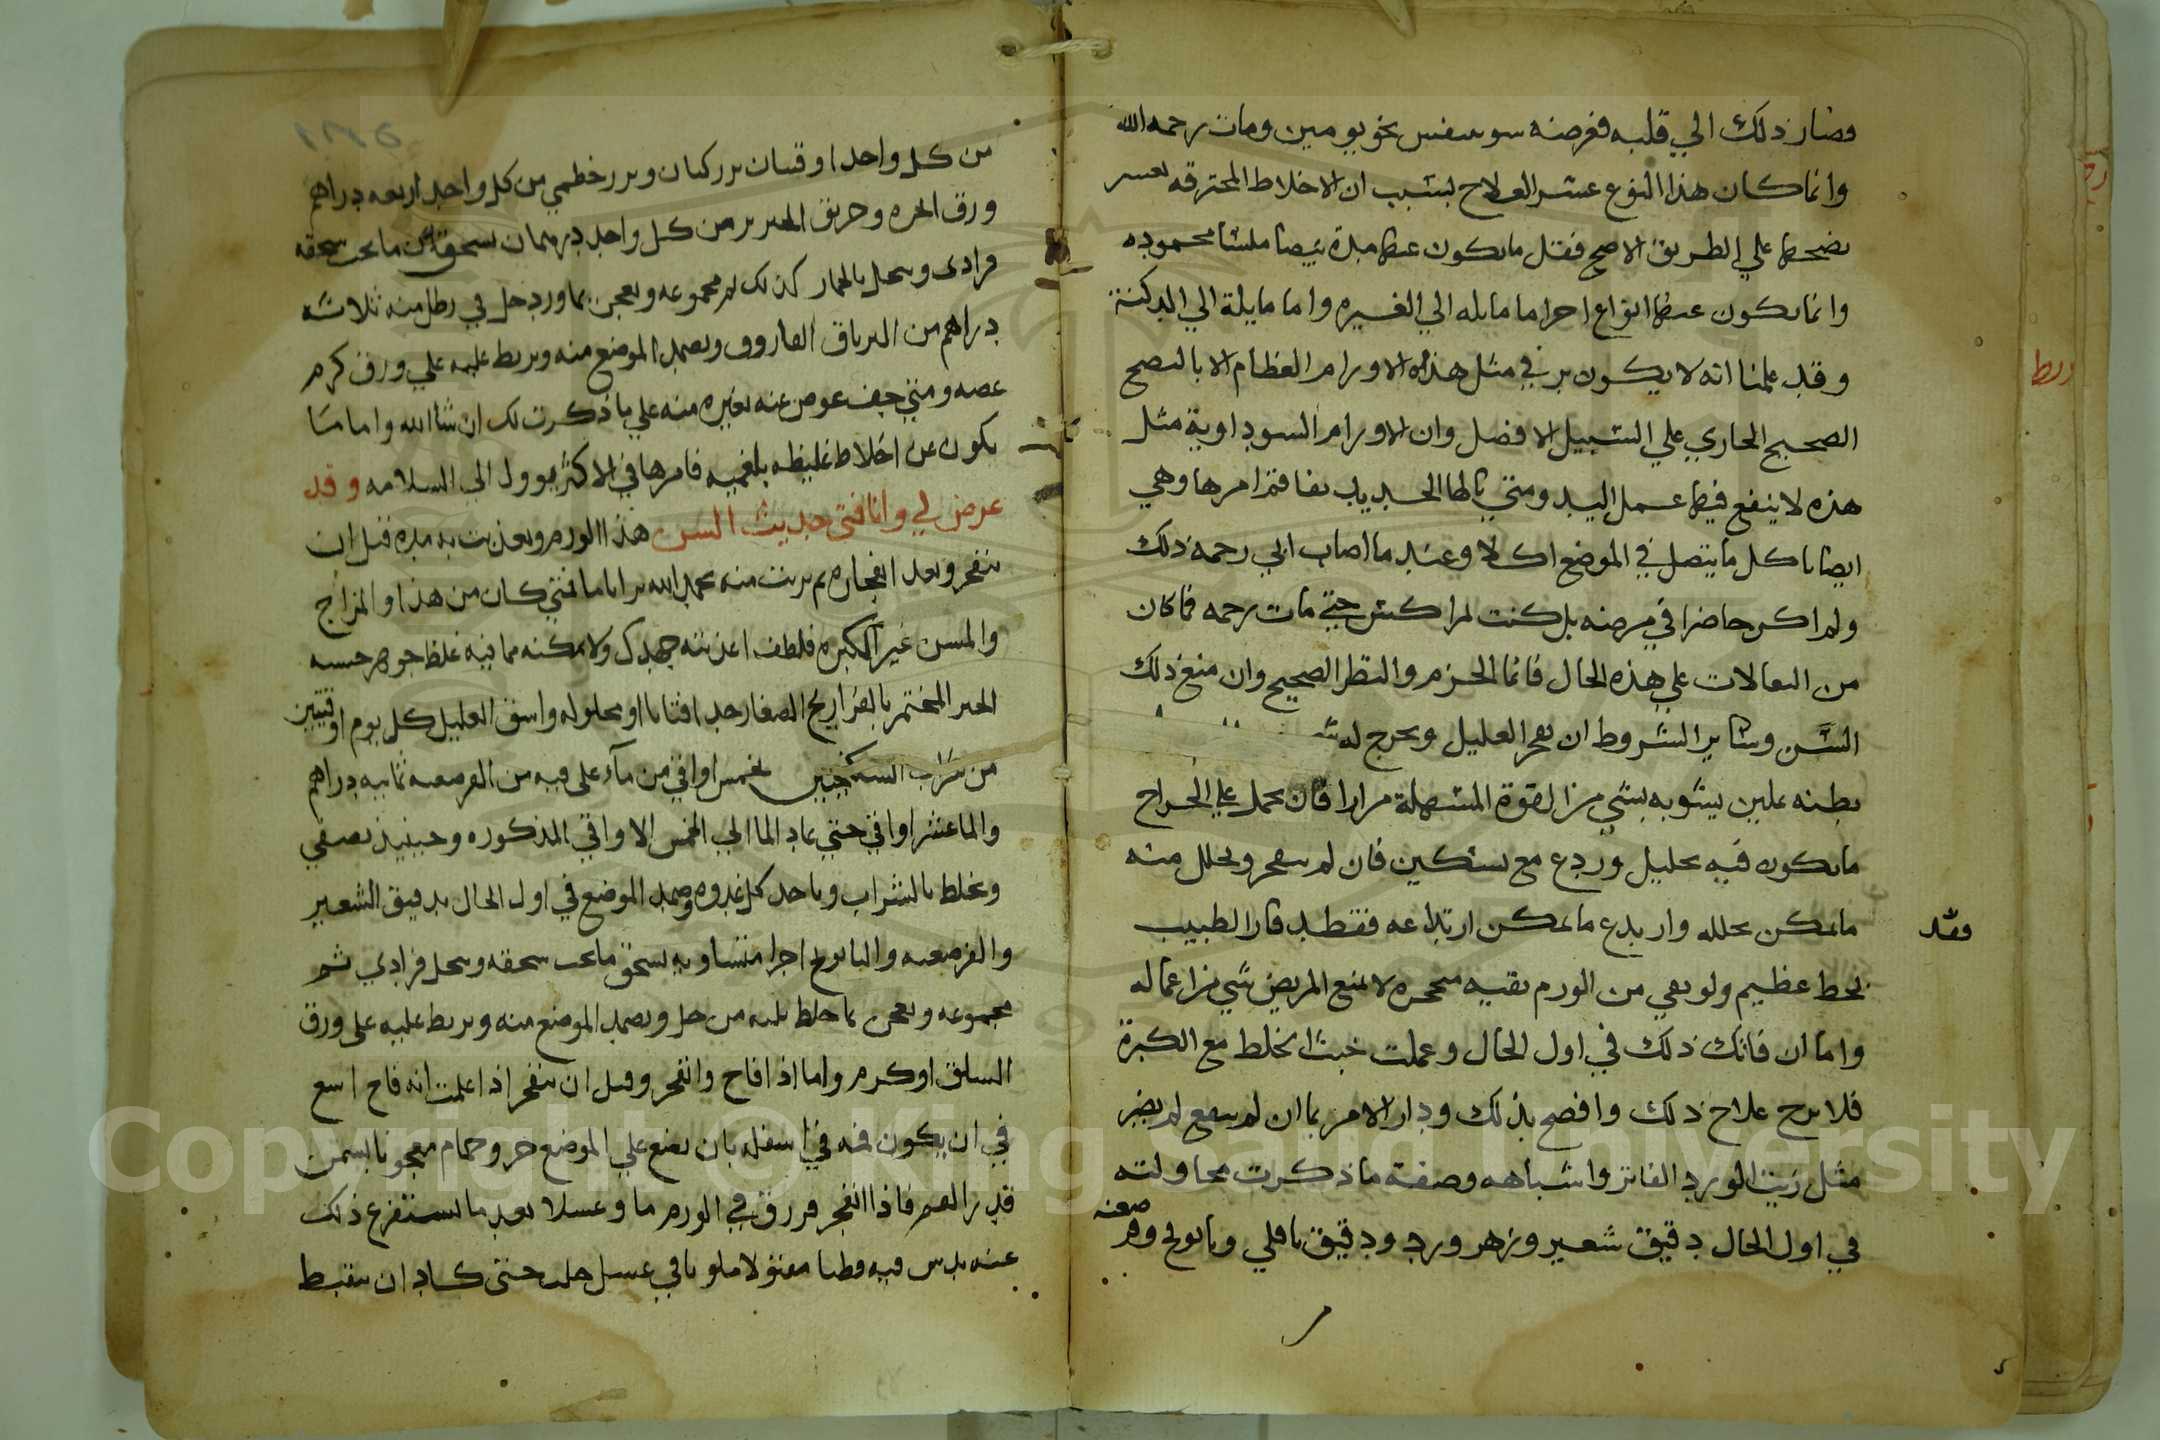 وصار ذلك الي قلبه فغرضه سو سفس نحو يومين ومات رحمه الله
وانما كان هذا النوع عسر العلاج لسبب ان الاخلاط المحترقه يعسر
نضجها علي الطريق الاصح فقل ما يكون عنها مدة بيضا ملسا محموده
وانما يكون عنها انواع اخر اما مايله الي الغبره واما مايلة الي الدكنة
وقد علمنا انه لا يكون بر في مثل هذه الاورام العظام الا بالنضج
الصحيح الجاري علي السبيل الافضل وان الاورام السوداوية مثل
هذه لا ينفع فيها عمل اليد ومتي نالها الحديد تفاقم امرها وهي
ايضا تاكل ما يتصل في الموضع اكلا وعند ما اصاب ابي رحمه ذلك
ولم اكن حاضرا في مرضه بل كنت لمراكش حتي مات رحمه فما كان
من النعالات علي هذه الحال فانما الحزم والنظر الصحيح وان منع ذلك
السن وساير الشروط ان يفجر العليل ويخرج له
بطنه بملين يشوبه بشي من القوة المسهلة مرارا فان يحمل علي الخراج
ما يكون فيه تحليل وردع مع تسكين فان لم ينفجر وتحلل منه
ما يمكن تحلله وارتدع ما يمكن ارتداعه فقط فقد فاز الطبيب
فقد
بحظ عظيم ولو بقي من الورم بقيه متحجره لا تمنع المريض شي من اعماله
واما ان فاتك ذلك في اول الحال وعملت خبث الخلط مع الكبرة
فلا ترج علاج ذلك وافصح بذلك ودار الامر بما ان لم ينفع لم يضر
مثل زيت الورد الفاتر واشباهه وصفة ما ذكرت محاولته
في اول الحال دقيق شعير وزهر ورد ودقيق باقلي وبابونج
صفه
من كل واحد اوقيتان بزر كتان وبزر خطمي من كل واحد اربعه دراهم
ورق الخره وحريق الحرير من كل واحد درهمان تسحق ما يجب سحقه
فرادى وينخل بالخمار كذلك ثم مجموعه ويعجن بماورد خل في رطل منه ثلاثة
دراهم من الترياق الفاروق ويضمد الموضع منه ويربط عليه علي ورق كرم
غضه ومتي جف عوض عنه بغيره منه علي ما ذكرت لك ان شا الله واما ما
يكون عن اخلاط غليظه بلغميه فامرها في الاكثر يوول الي السلامه وقد
عرض لي وانا فتى حديث السن هذا الورم وتعذبت به مده قبل ان
ينفجر وبعد انفجاره ثم بريت منه بحمد الله برا تاما فمتي كان من هذا والمزاج
والسن غير الكبره فلطف اغذيته جهدك ولا تمكنه مما فيه غلظ جوهر حسبه
الخبز المختمر بالفراريج الصغار جدا فتاتا او محلوله واسق العليل كل يوم اوقيتين
من شراب السكنجبين بخمس اواقي من مآء غلي فيه من القرصعنه ثمانيه دراهم
والما عشر اواقي حتي عاد الما الي الخمس الاواقي المذكوره وحينيذ تصفي
وتخلط بالشراب وياخذ كل غدوه وضمد الموضع في اول الحال بدقيق الشعير
والقرصعنه والبابونج اجزا متساويه تسحق ما يجب سحقه وينخل فرادي ثم
مجموعه ويعجن بما خلط ثلثه من خل ويضمد الموضع منه ويربط عليه علي ورق
السلق او كرم واما اذا قاح وانفجر وقبل ان ينفجر اذا علمت انه قاح اسع
في ان يكون فمه في اسفله بان تضع علي الموضع خرو حمام معجونا بسمن
قدر الفم فاذا انفجر فزرق في الورم ما وعسلا بعد ما تستفرغ ذلك
عنه ثم دس فيه قطنا مفتولا ملوثا في عسل حلب حتى كاد ان ينقبط